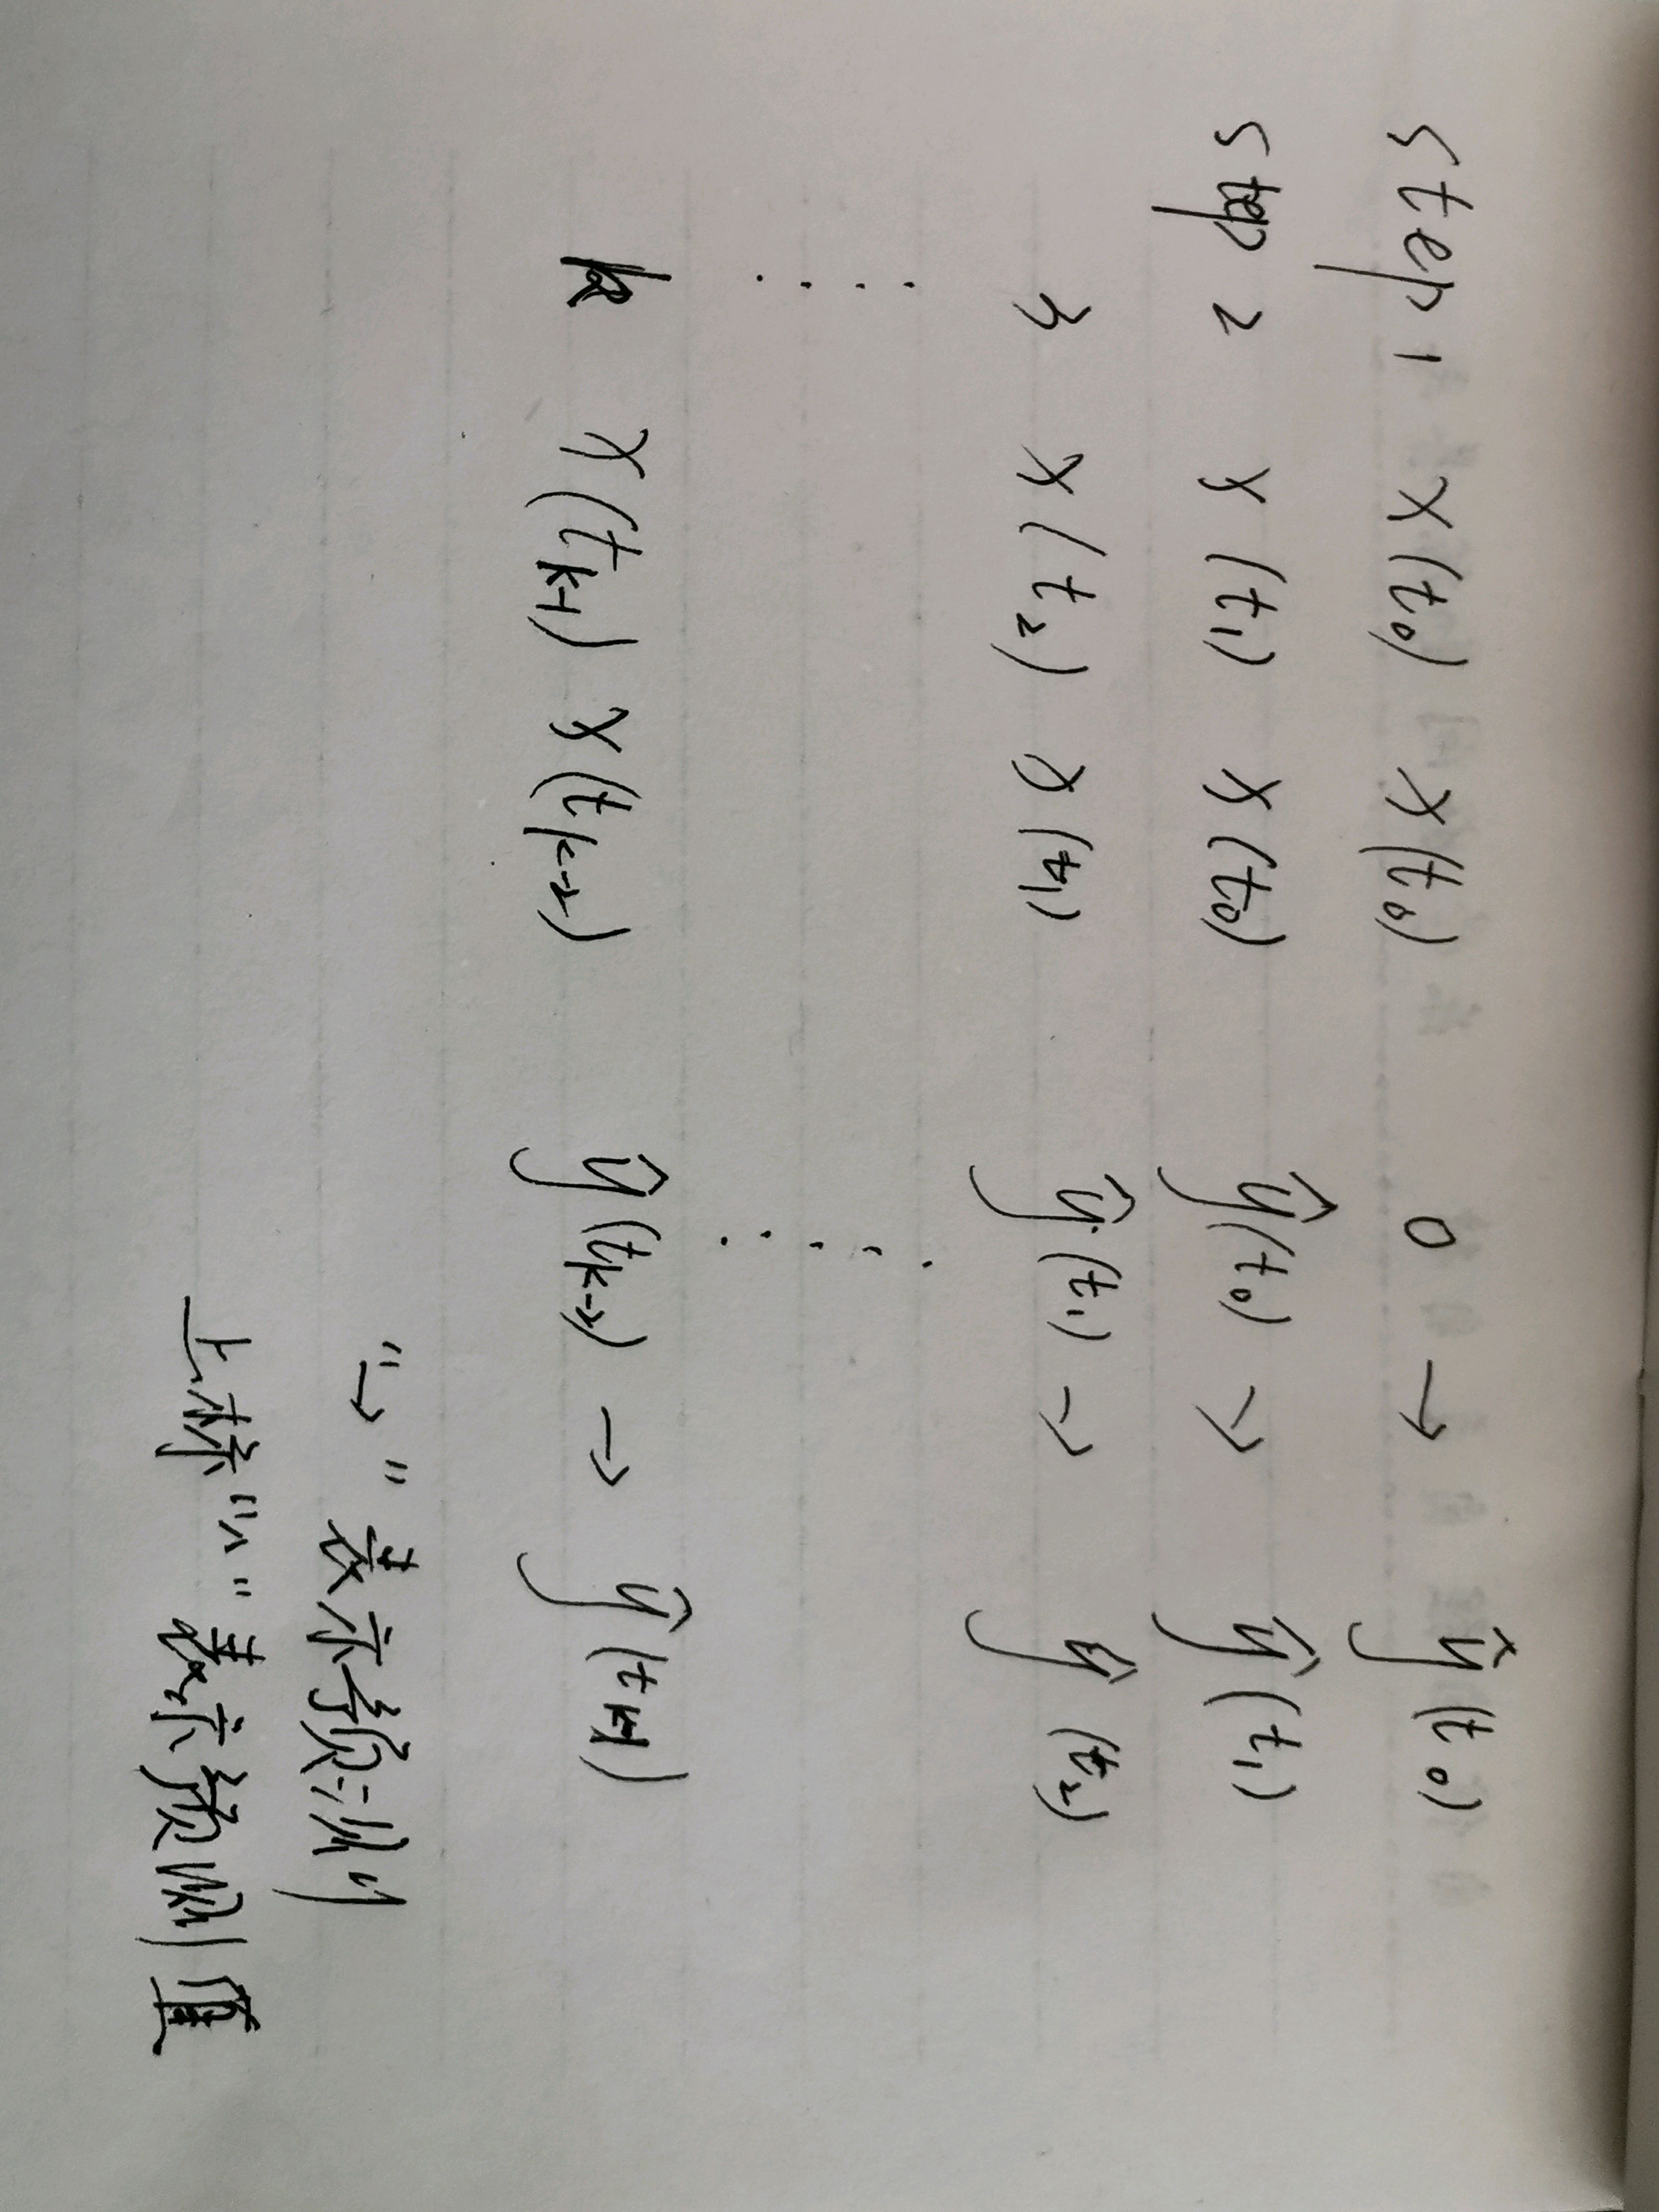 step 1 x(t₀) x(t₀) 0 → ŷ(t₀)
step 2 x(t₁) x(t₀) ŷ(t₀) → ŷ(t₁)
3 x(t₂) x(t₁) ŷ(t₁) → ŷ(t₂)
..... .....
k x(tₖ₋₁) x(tₖ₋₂) ŷ(tₖ₋₂) → ŷ(tₖ₋₁)
"→" 表示预测
上标"^" 表示预测值